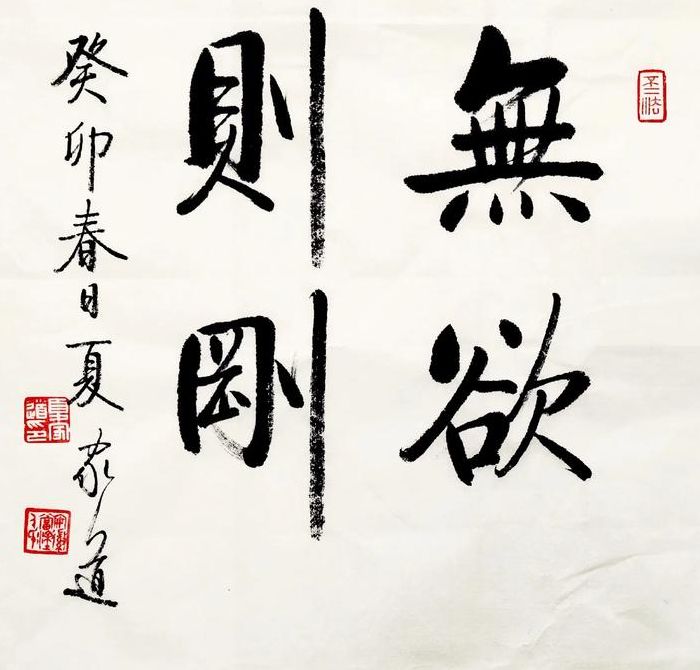 無欲
則剛
癸卯春日夏家道